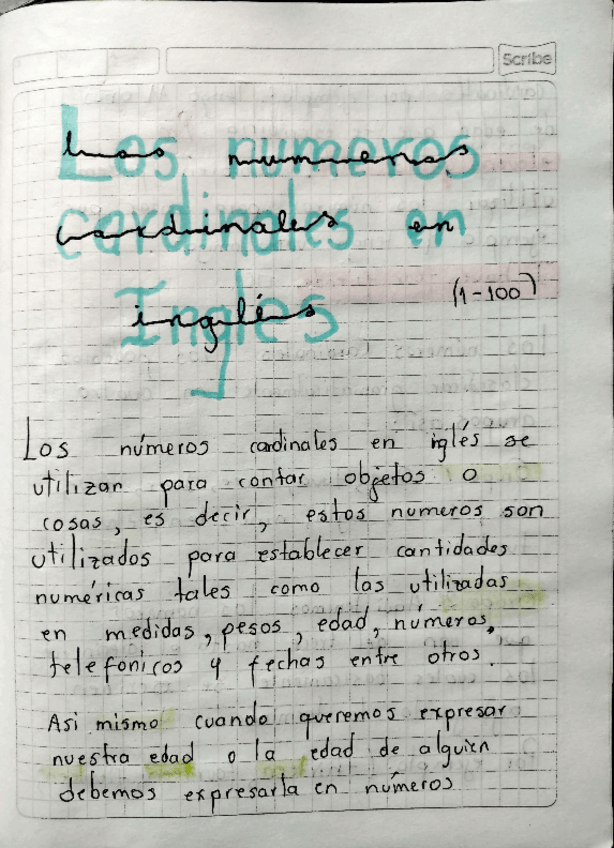 Scribe
Los numeros
cardinales en
Inglés
(1-100)
Los números cardinales en iglés se
utilizan para contar objetos o
cosas, es decir, estos numeros son
utilizados para establecer cantidades
numéricas tales como las utilizadas
en medidas, pesos, edad, números,
telefonicos y fechas entre otros.
Asi mismo cuando queremos expresar
nuestra edad o la edad de alguien
debemos expresarla en números